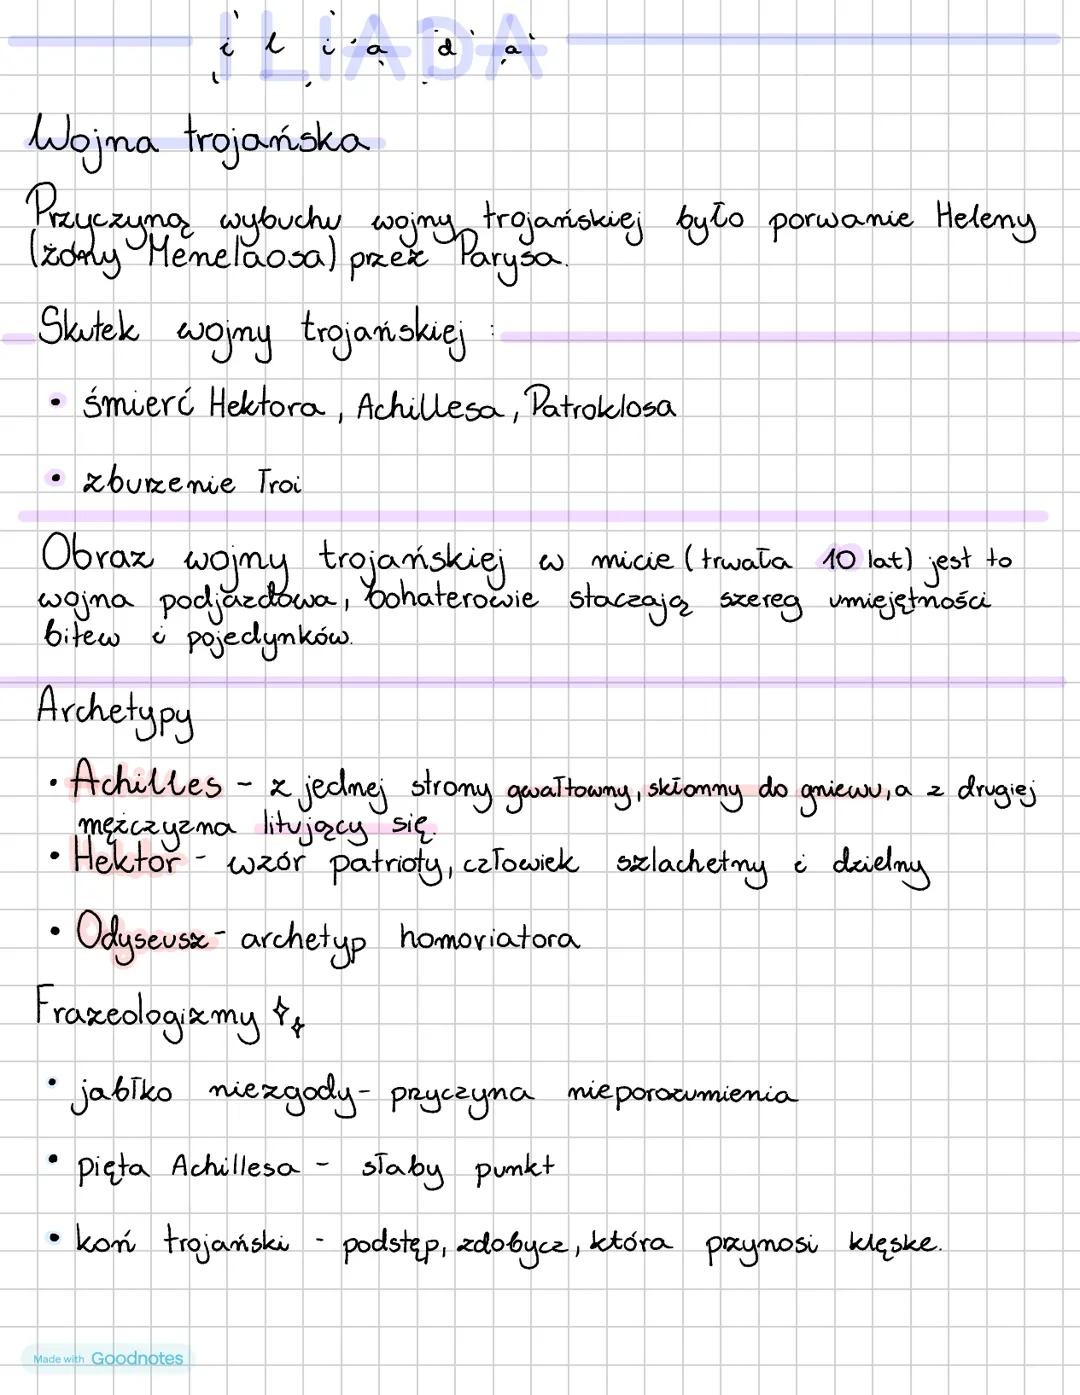 ILIADA
Wojna trojańska
Przyczyną wybuchu wojny trojańskiej było porwanie Heleny
(żony Menelaosa) przez Parysa.
Skutek wojny trojańskiej :
• śmierć Hektora, Achillesa, Patroklosa
• zburzenie Troi
Obraz wojny trojańskiej w micie (trwała 10 lat) jest to
wojna podjazdowa, bohaterowie staczają szereg umiejętności
bitew i pojedynków.
Archetypy
• Achilles - z jednej strony gwałtowny, skłonny do gniewu, a z drugiej
mężczyzna litujący się.
• Hektor - wzór patrioty, człowiek szlachetny i dzielny
• Odyseusz - archetyp homoviatora
Frazeologizmy
• jabłko niezgody - przyczyna nieporozumienia
• pięta Achillesa - słaby punkt
• koń trojański - podstęp, zdobycz, która przynosi klęske.
Made with Goodnotes